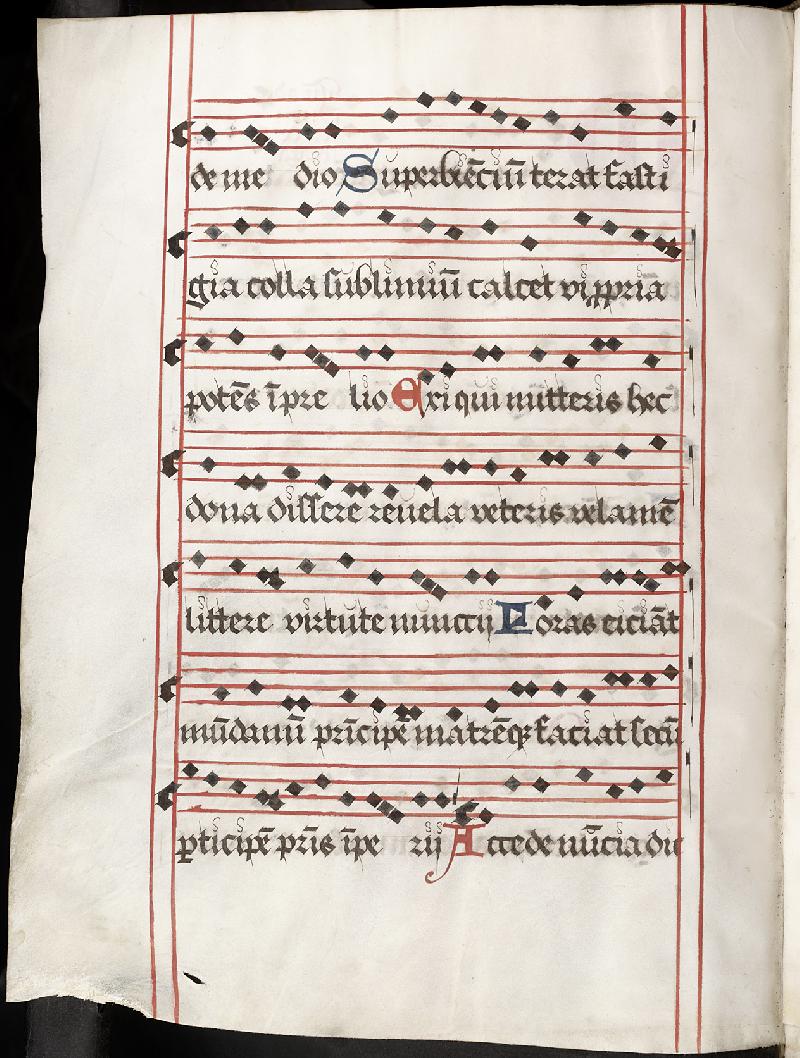 de me dio Superbiēciū terat fasti
gia colla sublimiū calcet vi ꝓpria
potēs ī pre lio Exi qui mitteris hec
dona dissere reuela veteris velamē
littere virtute nuncii Foras eiciāt
mūdanū prīcipē matrēqꝫ faciat secū
ꝑticipē pr̄is īpe rii Accede nūcia dic